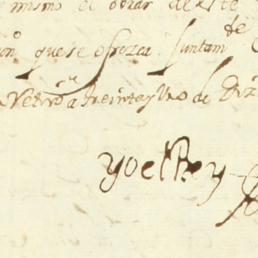 mismo el obrar de este
que se ofrezca. Juntam.te
Retiro a treinta y Uno de Diz
yo el Rey